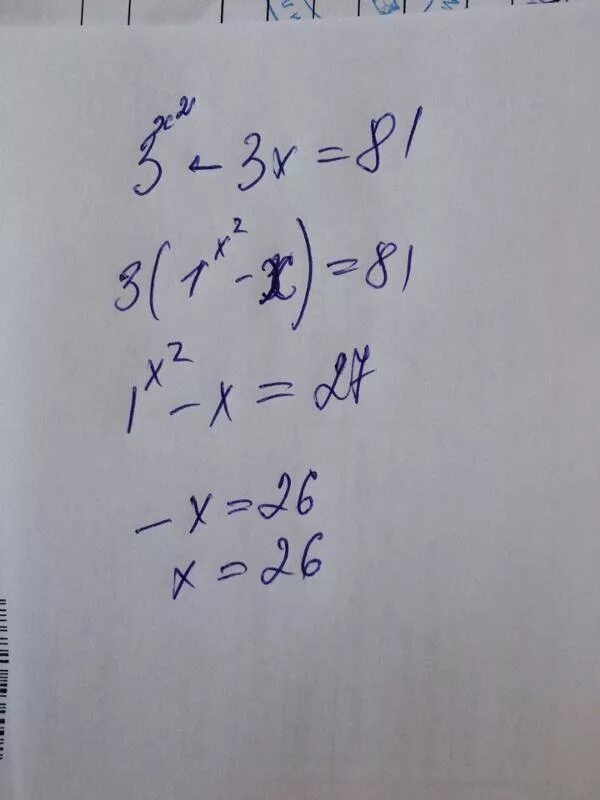 3^{x^2} - 3x = 81
3(1^{x^2} - x) = 81
1^{x^2} - x = 27
- x = 26
x = 26